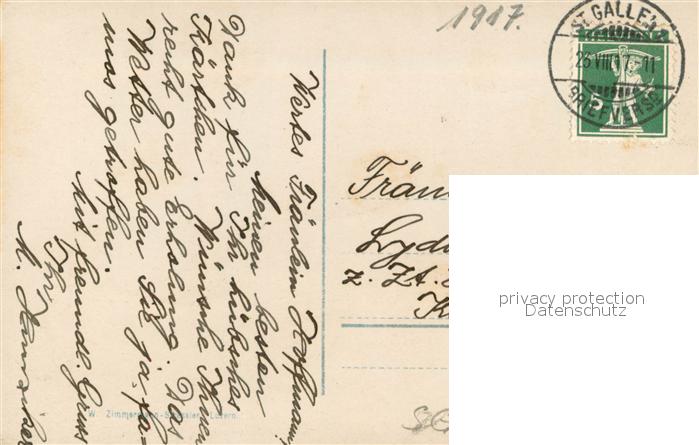 1917.
ST. GALLEN
23.VIII.17.-11
BRIEFVERSD.
Wertes Fräulein Hoffmann,
Meinen besten
Dank für Ihr hübsches
Kärtchen. Wünsche Ihnen
recht gute Erholung. Das
Wetter haben Sie ja fa-
mos getroffen.
Mit freundl. Gruss
Ihr
Fräu
Lyd
z. Zt.
W. Zimmermann Luzern.
privacy protection
Datenschutz